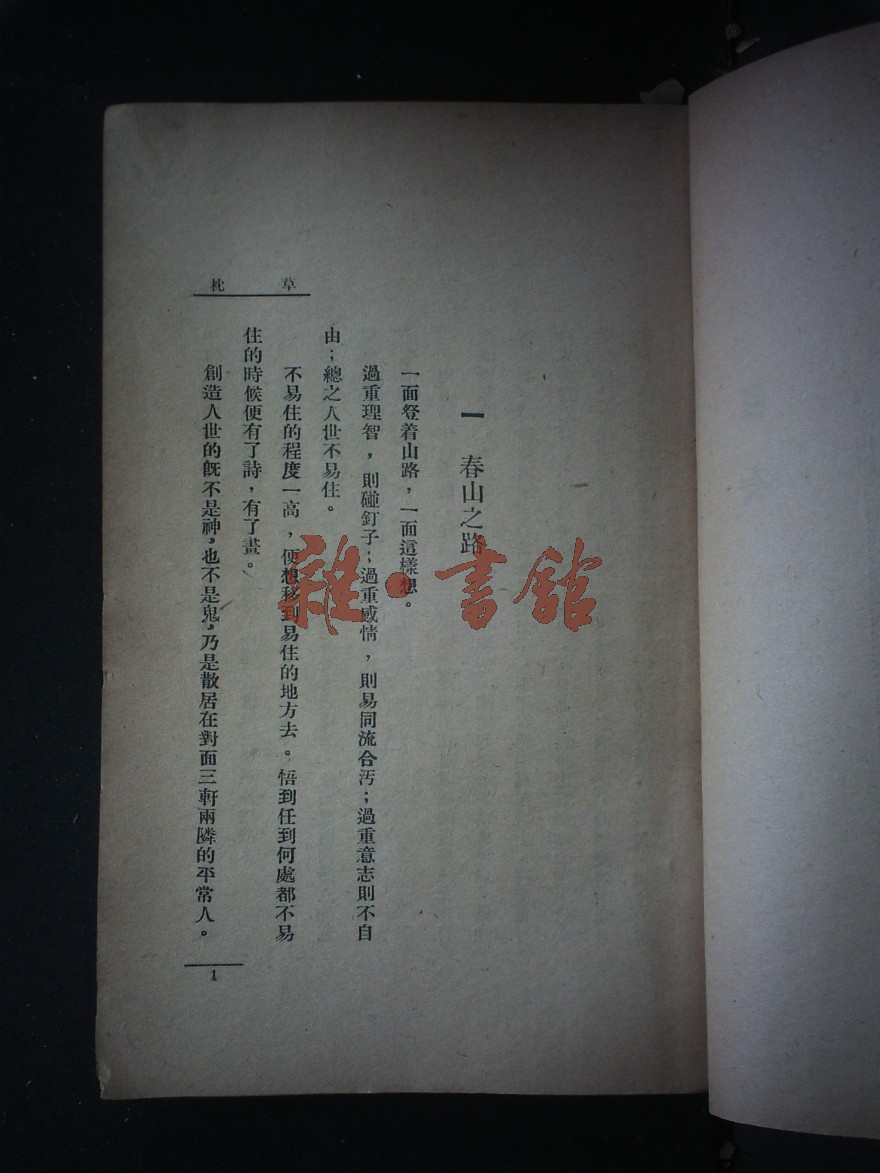 草枕
一 春山之路
一面登着山路，一面這樣想。
過重理智，則碰釘子；過重感情，則易同流合汚；過重意志則不自
由；總之人世不易住。
不易住的程度一高，便想移到易住的地方去。悟到任到何處都不易
住的時候便有了詩，有了畫。
創造人世的旣不是神，也不是鬼，乃是散居在對面三軒兩隣的平常人。
1
雜·書館